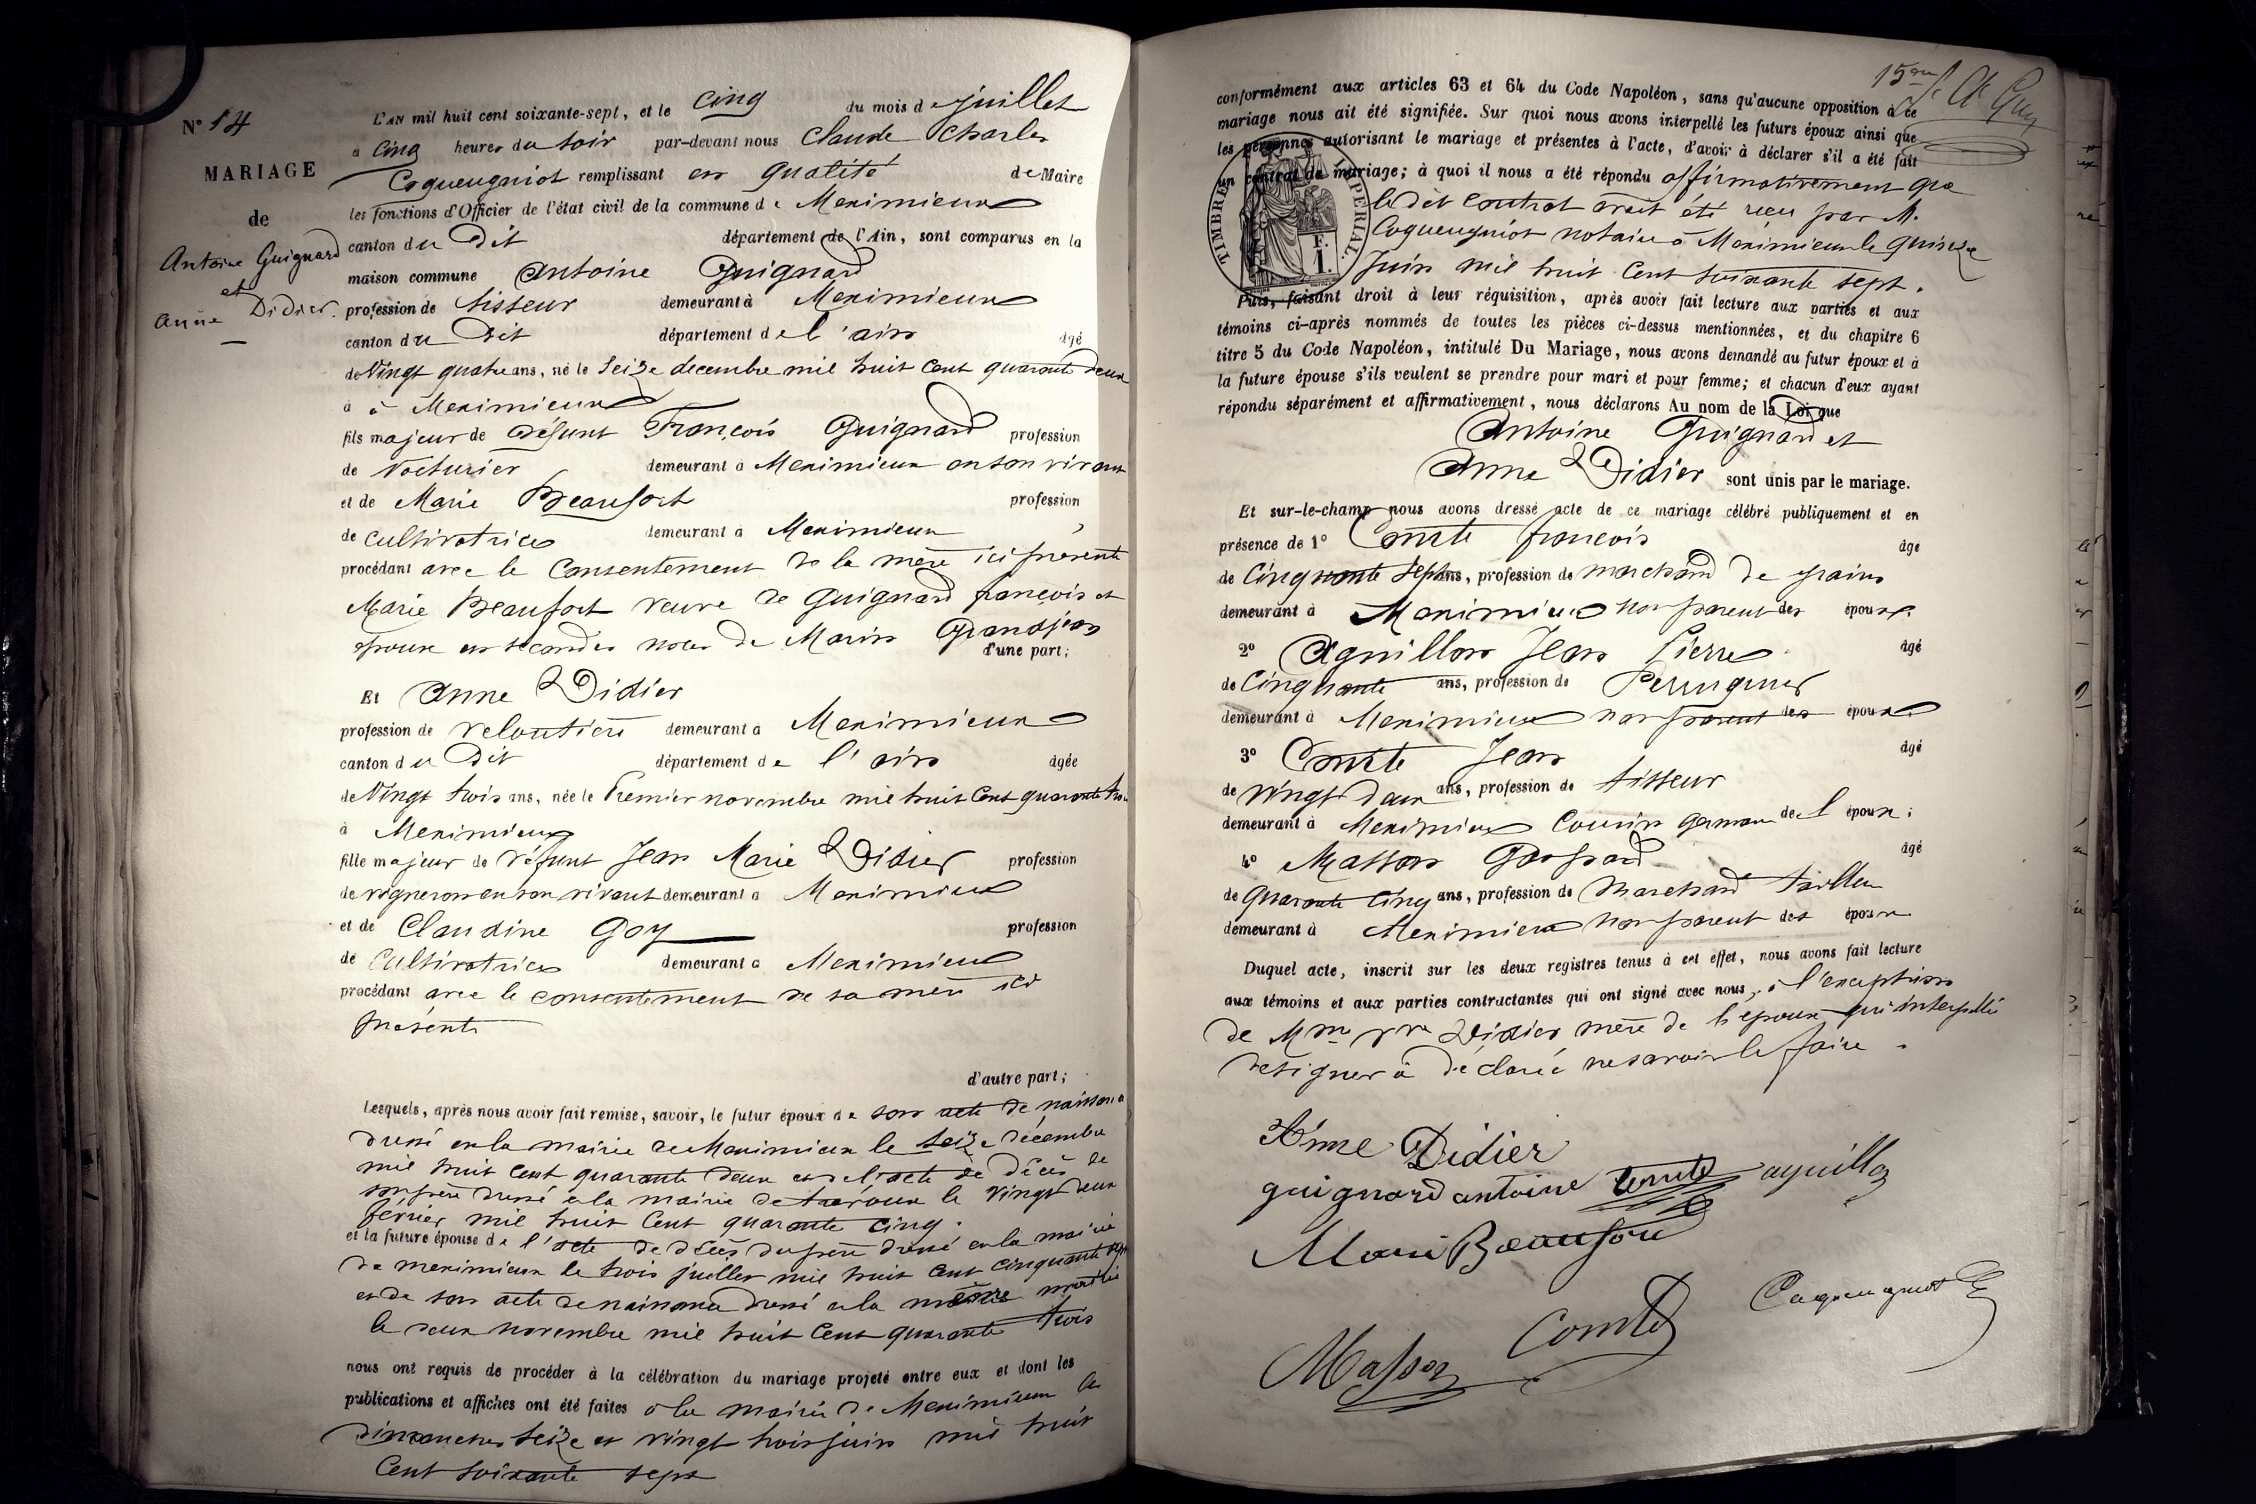 N° 14
MARIAGE
de
Antoine Guignard
et
Anne Didier.
L'AN mil huit cent soixante-sept, et le cinq du mois de juillet
à Cinq heures du soir par-devant nous Claude Charles
Coqueugniot remplissant en qualité de Maire
les fonctions d'Officier de l'état civil de la commune de Meximieux
canton du dit département de l'Ain, sont comparus en la
maison commune Antoine Guignard
profession de tisseur demeurant à Meximieux
canton du dit département de l'ain âgé
de Vingt quatre ans, né le Seize decembre mil huit cent quarante deux
à à Meximieux
fils majeur de défunt François Guignard profession
de voiturier demeurant à Meximieux en son vivant
et de Marie Beaufort profession
de cultivatrice demeurant à Meximieux
procédant avec le consentement de la mère ici présente
Marie Beaufort veuve de Guignard françois et
épouse en secondes noces de Marin Grandjean
d'une part;
Et Anne Didier
profession de veloutière demeurant à Meximieux
canton du dit département de l'ain âgée
de Vingt trois ans, née le Premier novembre mil huit Cent quarante trois
à Meximieux
fille majeur de défunt Jean Marie Didier profession
de vigneron en son vivant demeurant à Meximieux
et de Claudine Goy profession
de Cultivatrice demeurant à Meximieux
procédant avec le consentement de sa mère ici
présente
d'autre part;
Lesquels, après nous avoir fait remise, savoir, le futur époux de son acte de naissance
dressé en la mairie de Meximieux le seize décembre
mil huit cent quarante deux et de l'acte de décès de
son père dressé à la mairie de trévoux le vingt deux
février mil huit Cent quarante cinq.
et la future épouse de l'acte de décès du père dressé en la mairie
de meximieux le trois juillet mil huit cent cinquante sept
et de son acte de naissance dressé à la même mairie
le deux novembre mil huit Cent quarante trois
nous ont requis de procéder à la célébration du mariage projeté entre eux et dont les
publications et affiches ont été faites à la mairie de Meximieux les
dimanches seize et vingt trois juin mil huit
Cent soixante sept
15
conformément aux articles 63 et 64 du Code Napoléon, sans qu'aucune opposition à ce
mariage nous ait été signifiée. Sur quoi nous avons interpellé les futurs époux ainsi que
les personnes autorisant le mariage et présentes à l'acte, d'avoir à déclarer s'il a été fait
un contrat de mariage; à quoi il nous a été répondu affirmativement que
le dit contrat avait été reçu par M.
Coqueugniot notaire à Meximieux le quinze
Juin mil huit Cent soixante sept.
TIMBRE IMPERIAL.
F.
1.
Puis, faisant droit à leur réquisition, après avoir fait lecture aux parties et aux
témoins ci-après nommés de toutes les pièces ci-dessus mentionnées, et du chapitre 6
titre 5 du Code Napoléon, intitulé Du Mariage, nous avons demandé au futur époux et à
la future épouse s'ils veulent se prendre pour mari et pour femme; et chacun d'eux ayant
répondu séparément et affirmativement, nous déclarons Au nom de la Loi que
Antoine Guignard et
Anne Didier sont unis par le mariage.
Et sur-le-champ nous avons dressé acte de ce mariage célébré publiquement et en
présence de 1° Comte françois âgé
de Cinquante Sept ans, profession de marchand de grains
demeurant à Meximieux non parent des époux.
2° Aguillon Jean Pierre âgé
de Cinquante ans, profession de Perruquier
demeurant à Meximieux non parent des époux
3° Comte Jean âgé
de vingt deux ans, profession de tisseur
demeurant à Meximieux Cousin germain de l époux;
4° Masson Gaspard âgé
de quarante Cinq ans, profession de Marchand tailleur
demeurant à Meximieux non parent des époux
Duquel acte, inscrit sur les deux registres tenus à cet effet, nous avons fait lecture
aux témoins et aux parties contractantes qui ont signé avec nous, à l'exception
de Mme vve Didier mère de l'épouse qui interpellée
de signer à déclaré ne savoir le faire.
Anne Didier
guignard antoine Comte aguillon
Marie Beaufort
Coqueugniot
Comte
Masson